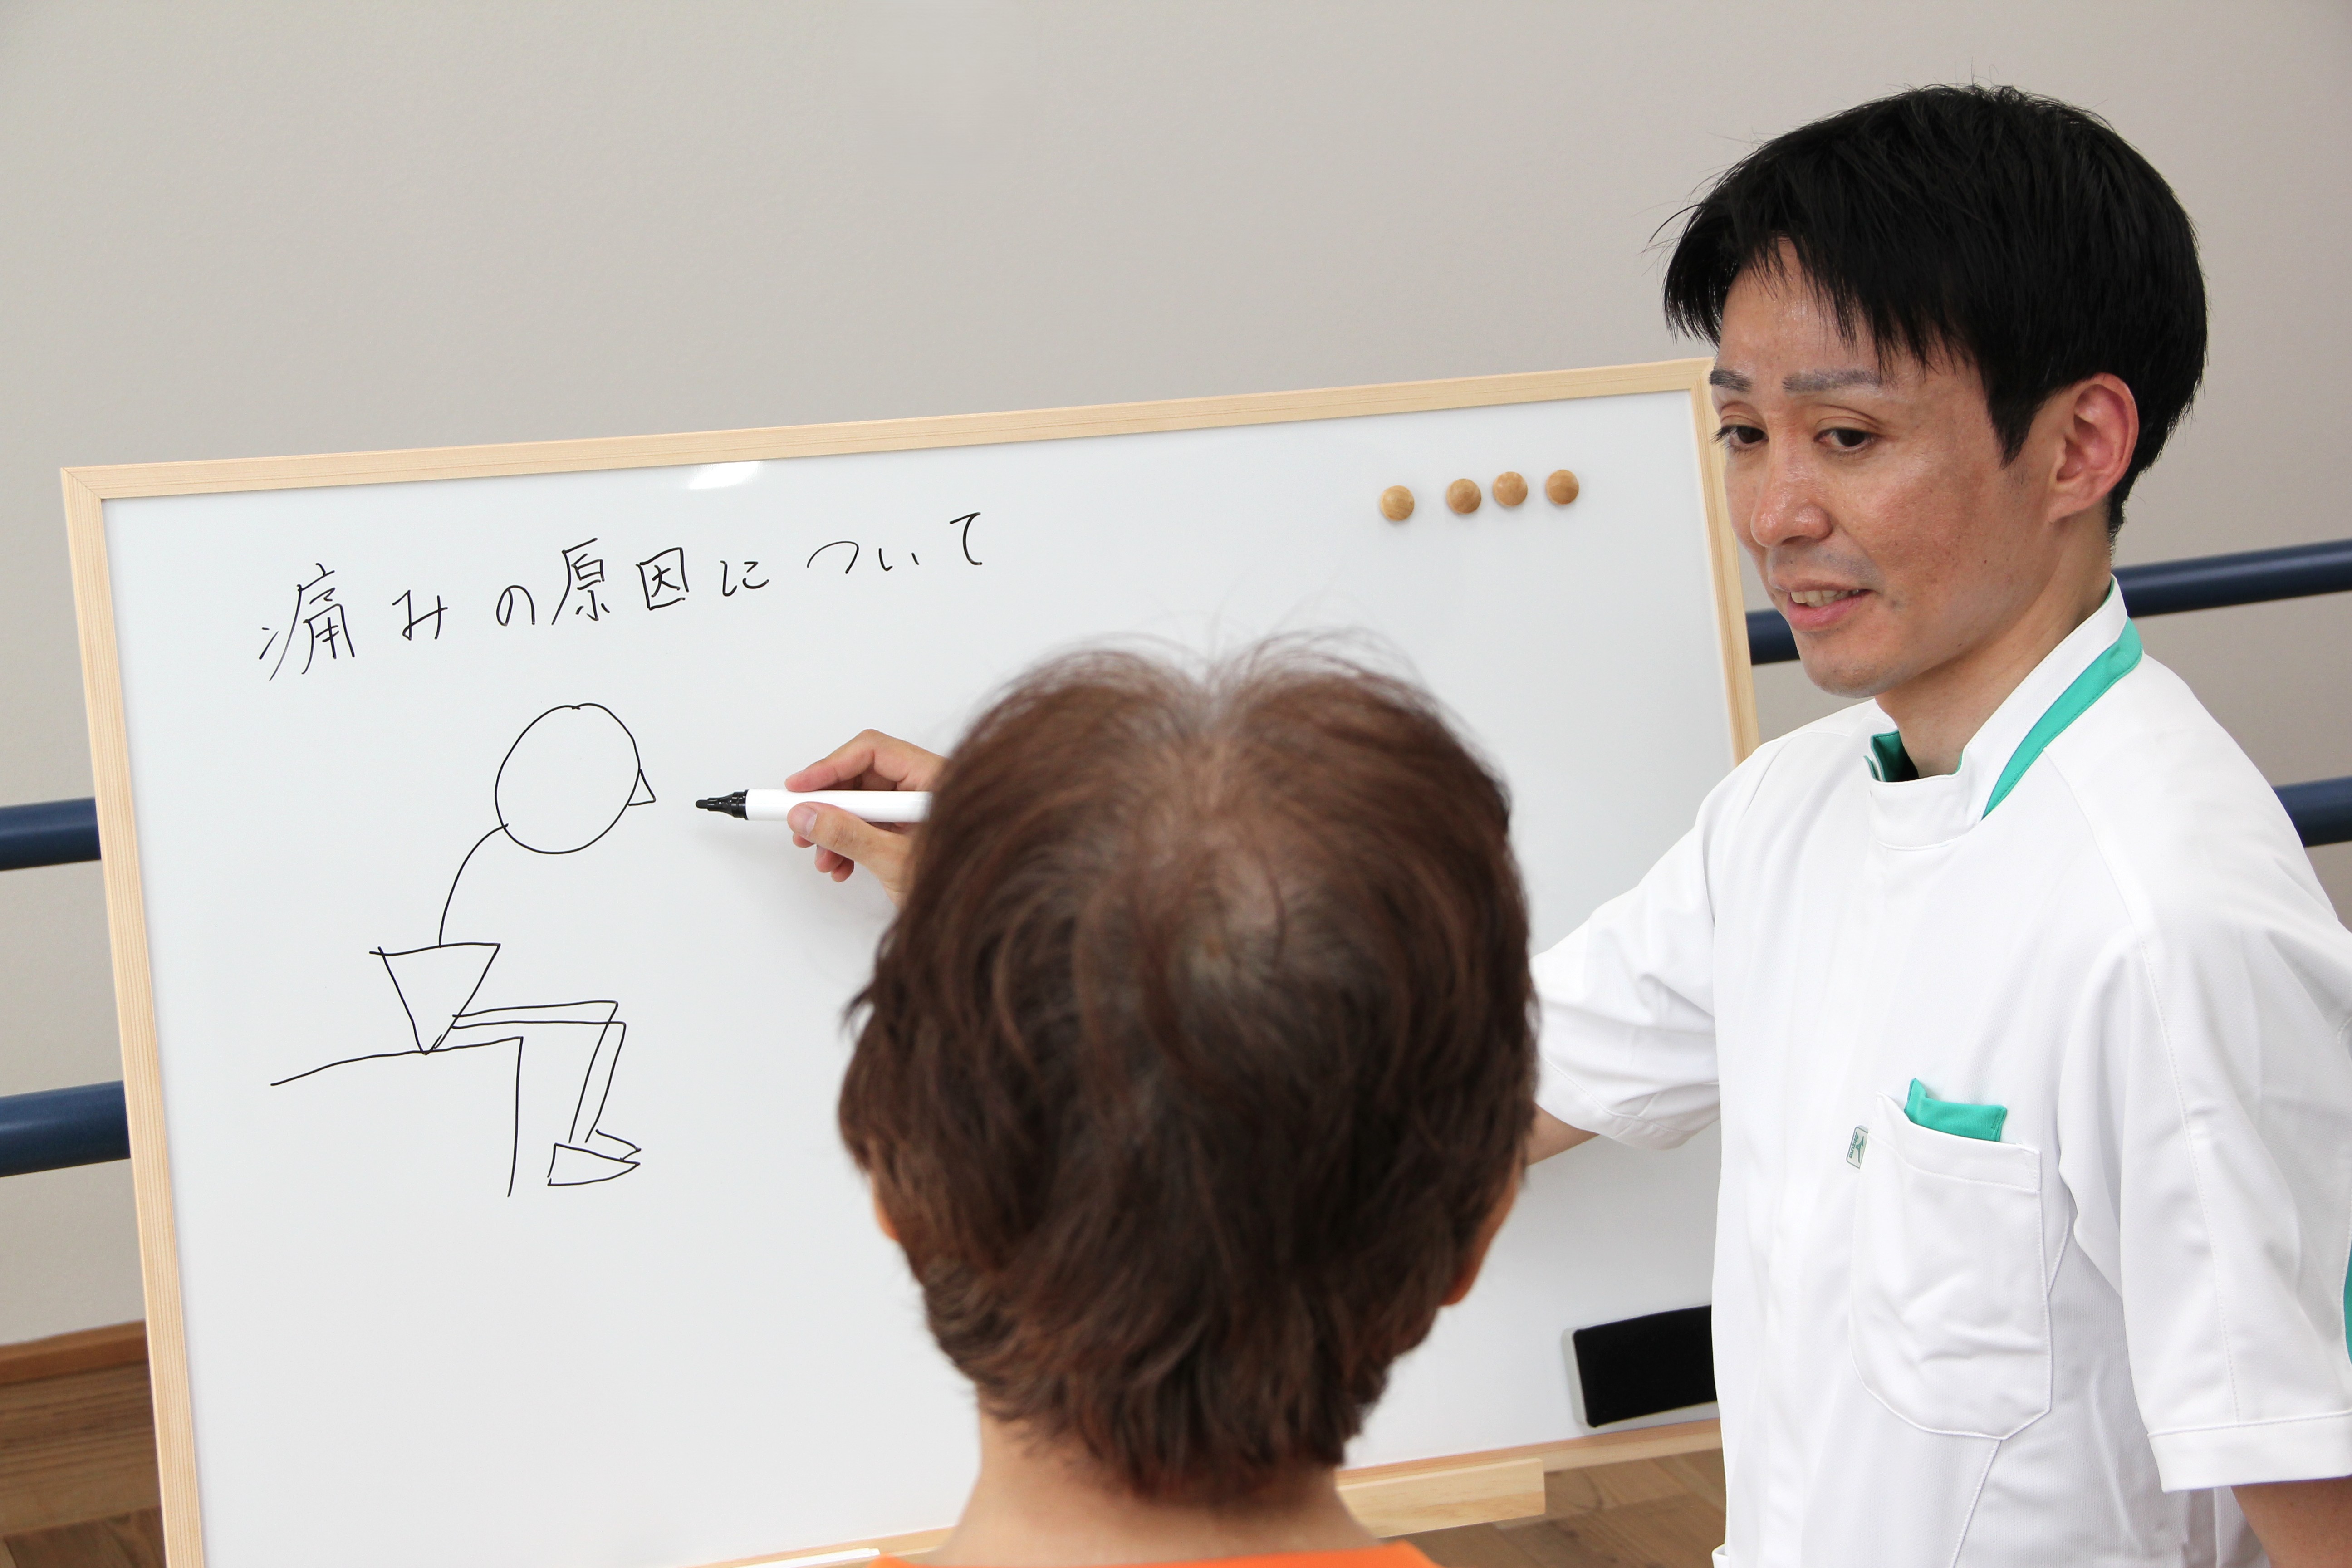 痛みの原因について